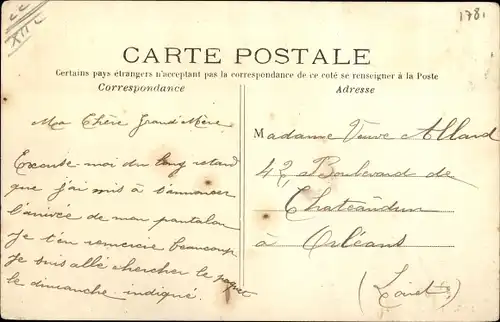 XIIe
1781
CARTE POSTALE
Certains pays étrangers n'acceptant pas la correspondance de ce coté se renseigner à la Poste
Correspondance
Ma Chère Grand'Mère
Excuse-moi du long retard
que j'ai mis à t'annoncer
l'arrivée de mon pantalon
je t'en remercie beaucoup
je suis allé chercher le paquet
le dimanche indiqué.
Adresse
Madame Veuve Allard
42, Boulevard de
Chateaudun
à Orléans
(Loiret)